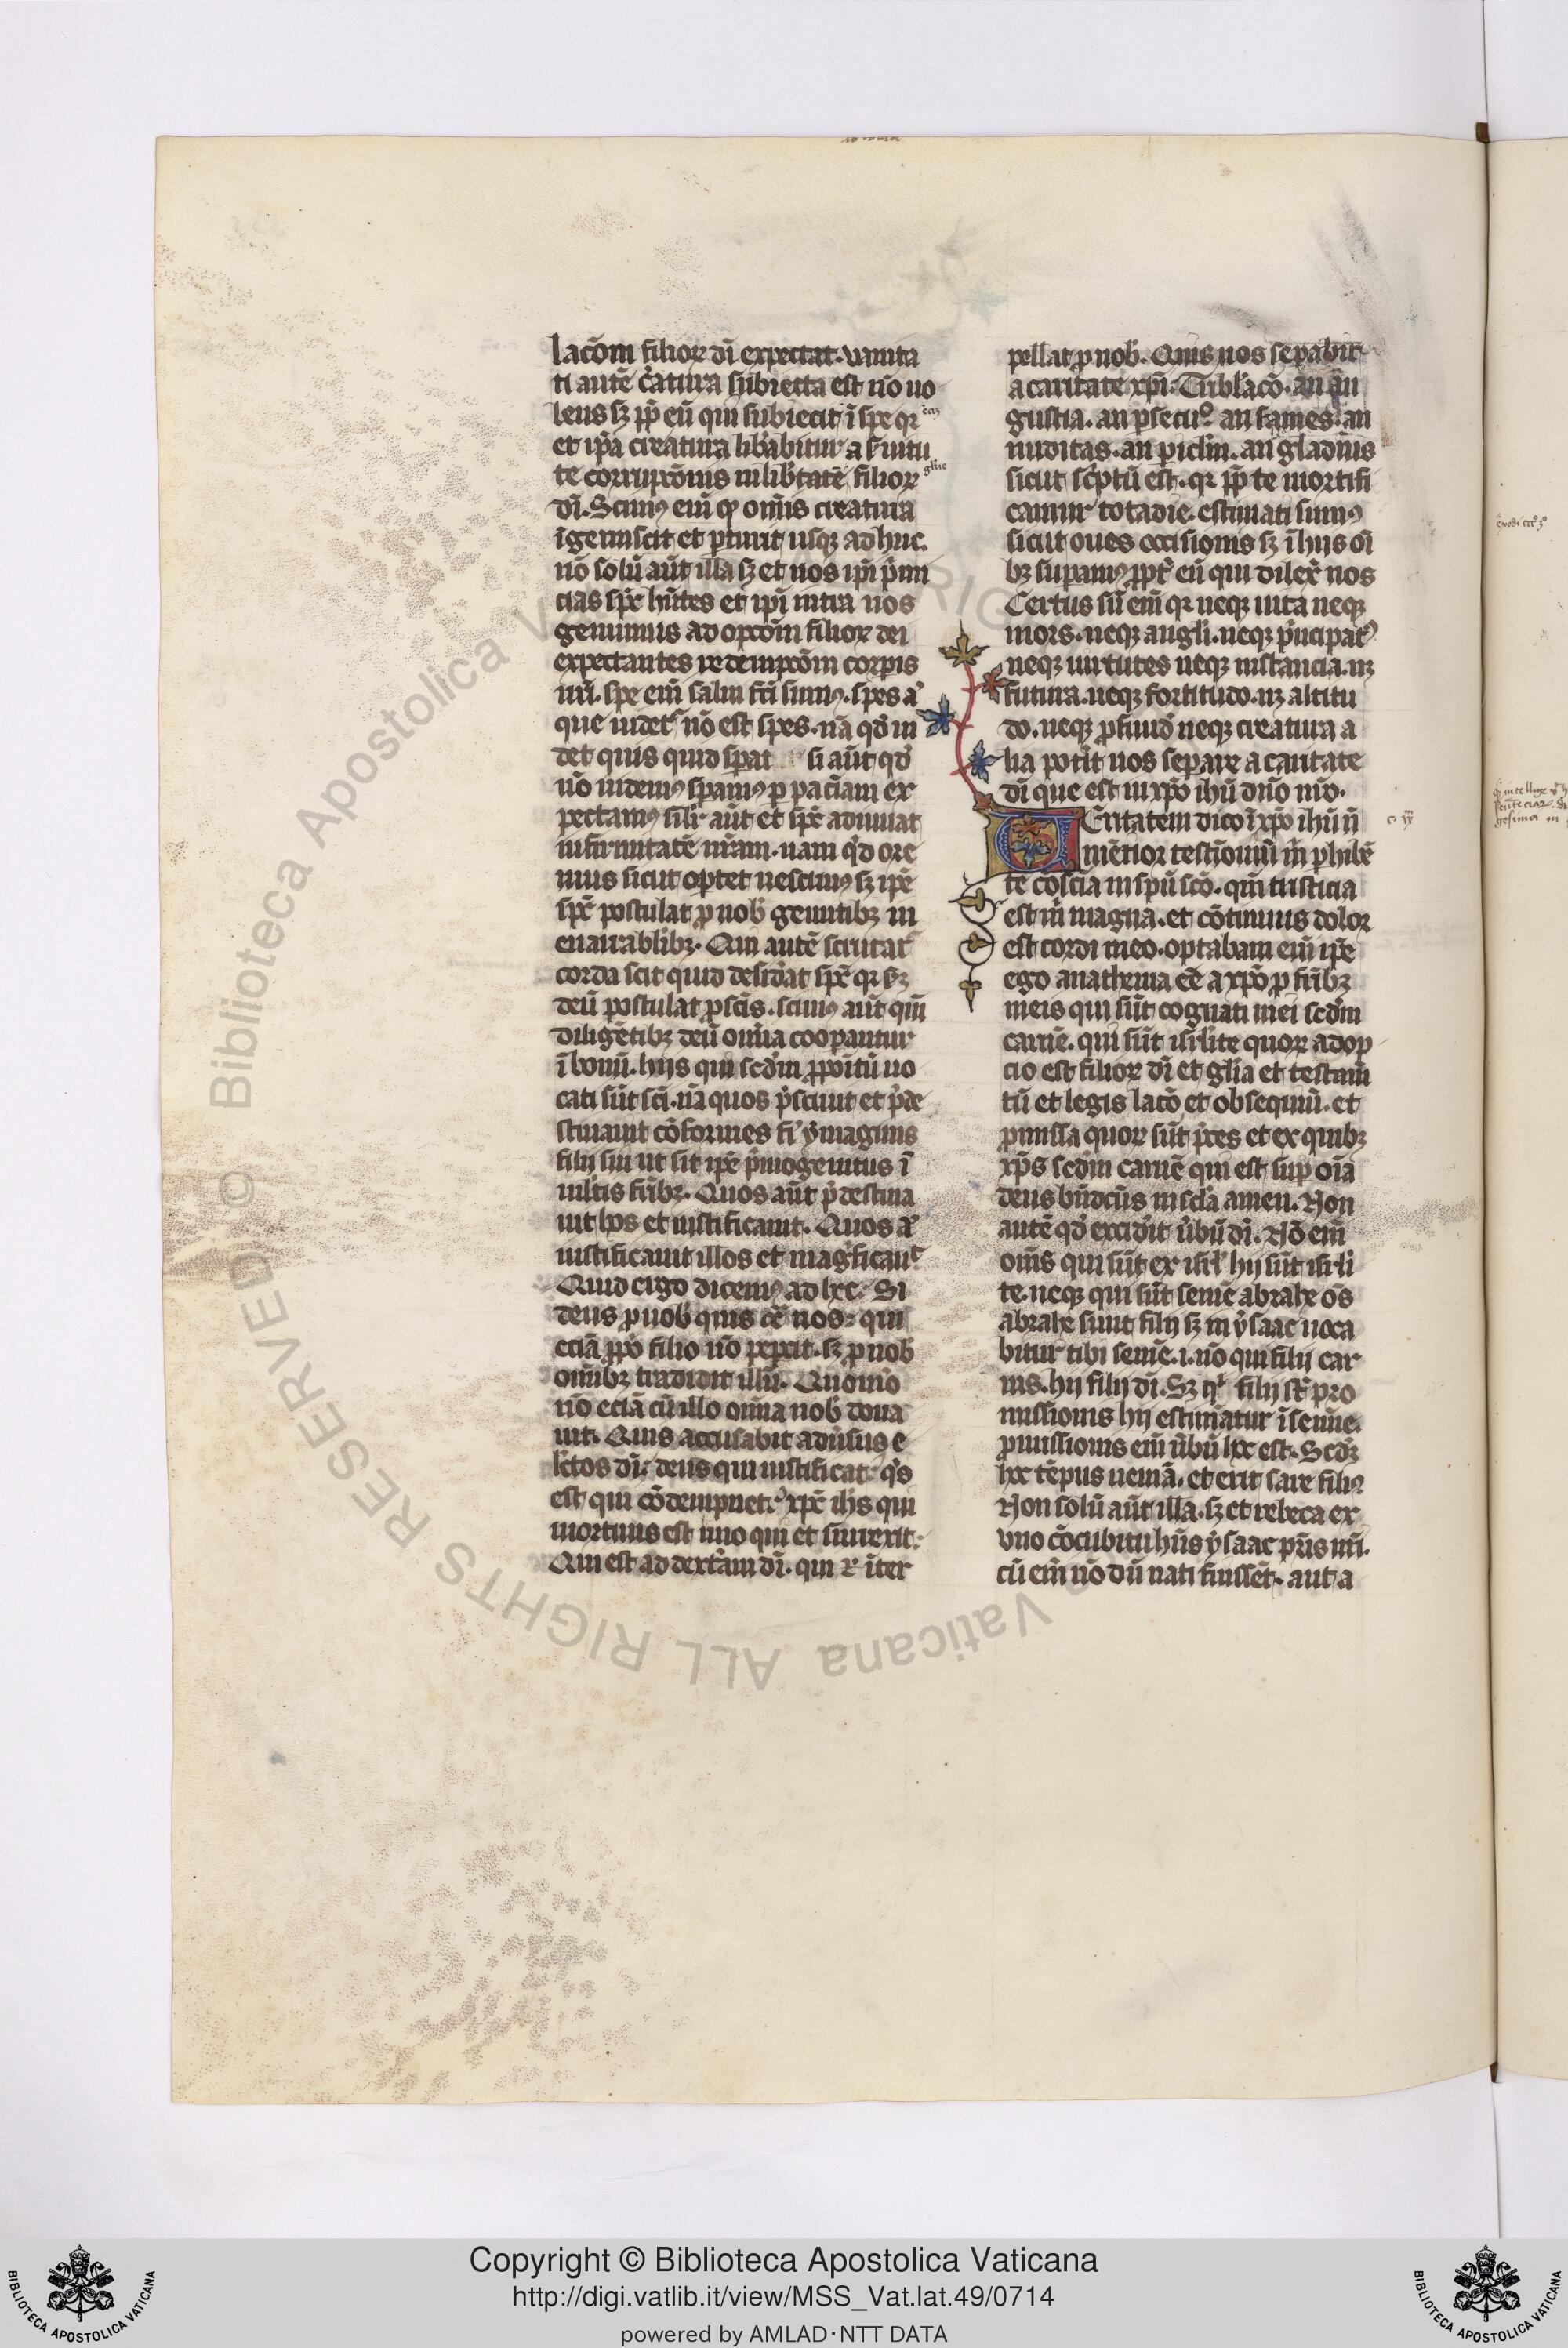 lac̄om filioꝝ dī expectat. vanita
ti autē c̄atura subiecta est nō uo
lens sꝫ ꝓp̄ eū qui subiecit ī spe qꝛ
et ip̄a creatura lib̄abitur a s̄uitu
te corrupc̄onis in lib̄tatē filioꝝ
gl̄ie
dī. Scimꝰ enī ꝙ om̄is creatura
īgemiscit et ꝑturit usqꝫ adhuc.
nō solū aūt illa sꝫ et nos ip̄i p̄mi
cias sp̄c hn̄tes et ip̄i intra nos
gemimus adopc̄om filioꝝ dei
expectantes redempc̄om corpis
nr̄i. spe enī salui fc̄i sumꝰ. spes aͧ
que uidetᷣ nō est spes. nā qd̓ ui
det quis quid sꝑat si aūt qd̓
nō uidemꝰ sꝑamꝰ ꝑ pac̄iam ex
pectamꝰ silr̄ aūt et sp̄c adiuuat
infirmitatē nr̄am. nam qd̓ ore
mus sicut optet nescimꝰ sꝫ ip̄e
sp̄c postulat ꝓ nob̓ gemitibꝫ in
enarrablibꝫ. Qui autē scrutatᷣ
corda scit quid desid̓at sp̄c qꝛ s̄ꝫ
deū postulat ꝓ scīs. scimꝰ aūt qm̄
diligētibꝫ deū omīa coopantur
ī bonū. hijs qui scd̓m ꝓpoitū uo
cati sūt scī. nā quos p̄sciuit et p̄de
stinauit cōformes fiͥ ymaginis
filij sui ut sit ip̄e p̄mogenitus ī
ml̓tis fr̄ibꝫ. Quos aūt p̄destina
uit hos et iustificauit. Quos aͧ
iustificauit illos et magͥficauͭ
Quid ergo dicemꝰ ad hec. Si
deus ꝓ nob̓ quis cͦ nos: qui
eciā ꝓpͦo filio nō peꝑcit. sꝫ ꝓ nob̓
omībꝫ tradidit illū. Quomō
nō eciā cū illo omīa nob̓ dona
uit. Quis accusabit adūsus e
lc̄tos dī: deus qui iustificat. qͥs
est qui cōdempnet: xp̄c ih̄s qui
mortuus est imo qui et surrexit:
Qui est ad dextͣam dī. qui ꝛ īter
pellat ꝓ nob̓. Quis nos seꝑabit
a caritate xp̄i. Tribl̓acō. an an
gustia. an ꝑsecuͦ. an fames. an
nuditas. an ꝑiclm̄. an gladiūs
sicut sc̓ptū est. qꝛ ꝓp̄ te mortifi
camur tota die. estimati sumꝰ
sicut oues occisionis sꝫ ī hijs oī
bꝫ suꝑamꝰ ꝓpt̓ eū qui dilex̓ nos
Certus sū enī qꝛ neqꝫ uita neqꝫ
mors. neqꝫ angli. neqꝫ p̓ncipatꝰ
neqꝫ uirtutes neqꝫ instancia. nꝫ
futura. neqꝫ fortitudo. nꝫ altitu
do. neqꝫ ꝓfund̓ neqꝫ creatura a
lia pot̓it nos seꝑare a caritate
dī que est in xp̄o ih̄ū dn̄o nr̄o.
Veritatem dico ī xp̄o ih̄ū n̄
mētior testīoniū m̄ ꝑhibē
te cōsciā in spū scō. qm̄ tristicia
est m̄ magna. et cōtinuus dolor
est cordi meo. optabam enī ip̄e
ego anathema eē a xp̄o ꝓ fr̄ibꝫ
meis qui sūt cognati mei scd̓m
carnē. qui sūt isrl̓ite quoꝝ adop
cio est filioꝝ dī et gl̓ia et testam̄
tū et legis lacō et obsequiū. et
ꝓmissa quoꝝ sūt p̄res et ex quibꝫ
xp̄s scd̓m carnē qui est suꝑ oīa
deus bn̄dc̄us in scl̓a amen. Non
autē qd̓ excid̓it ūbū dī. Nō enī
om̄s qui sūt ex isrl̓ hij sūt isrl̓i
te. neqꝫ qui sūt semē abrahe oēs
abrahe sunt filij sꝫ in ysaac uoca
bitur tibi semē. i. nō qui filij car
nis. hij filij dī. Sꝫ qͥ filij sͭ pro
missionis hij estimātur ī semīe.
ꝓmissionis enī ūbū hec est. Scd̓ꝫ
hec tēpus ueniā. et erit sare filiꝰ
Non solū aūt illa. sꝫ et rebeca ex
vno cōcubitu hn̄s ysaac pr̄is nr̄i.
cū enī nō dū nati fuissēt. aut a
© Biblioteca Apostolica Vaticana ALL RIGHTS RESERVED
Copyright © Biblioteca Apostolica Vaticana
http://digi.vatlib.it/view/MSS_Vat.lat.49/0714
powered by AMLAD·NTT DATA
BIBLIOTECA APOSTOLICA VATICANA
BIBLIOTECA APOSTOLICA VATICANA